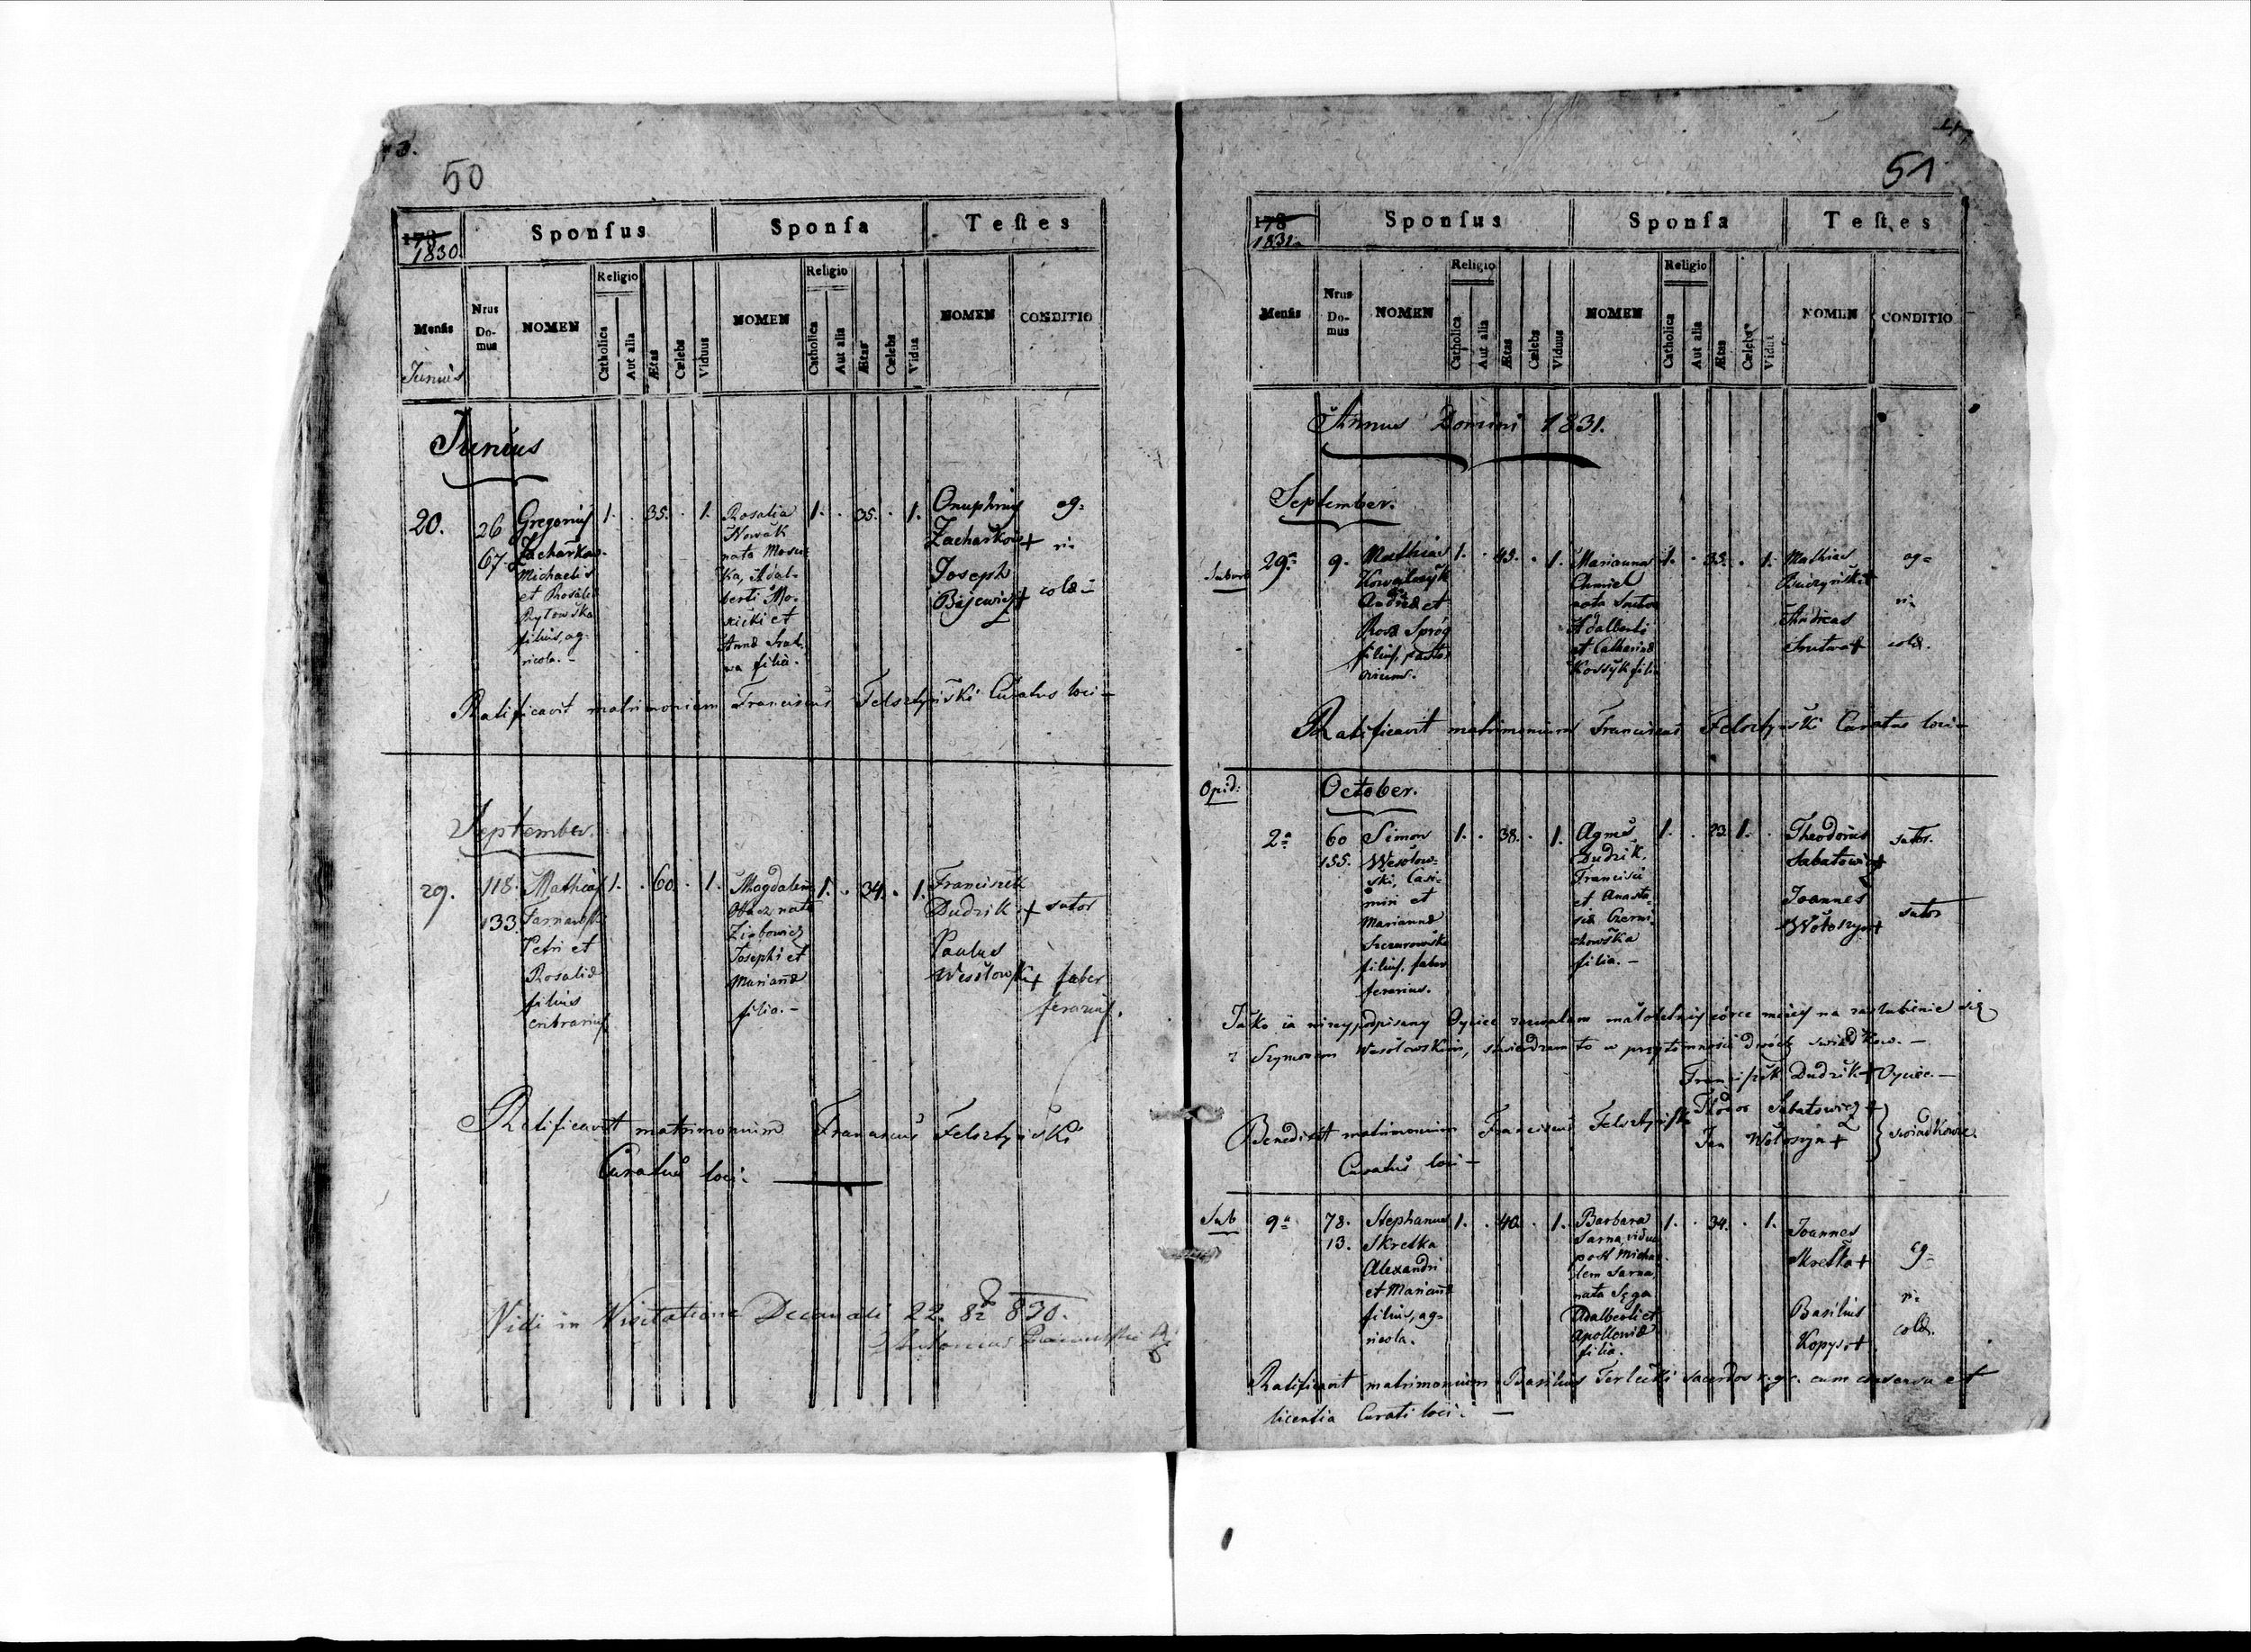 50
178
1830
Sponſus
Sponſa
Teſtes
Menſis
Nrus Do-mus
NOMEN
Religio
Catholica
Aut alia
Ætas
Cælebs
Viduus
NOMEN
Religio
Catholica
Aut alia
Ætas
Cælebs
Vidua
NOMEN
CONDITIO
Junius
Junius
20.
26
67
Gregorius
Zacharkow
Michaelis
et Rosalia
Rytowska
filius, ag-
ricola. -
1. . 35. . 1.
Rosalia
Nowak
nata Mosic-
ka, Adal-
berti Mo-
sicki et
Annæ
filia.
1. . 35. . 1.
Onuphrius
Zacharkow +
Joseph
Bajewicz +
ag-
ri-
colæ -
Ratificavit matrimonium Franciscus Felsztyński Curatus loci -
September.
29.
118.
133.
Mathias
Tarnawski
Petri et
Rosaliæ
filius
cribrarius
1. . 60. . 1.
Magdalena
nata
Ziębowicz
Josephi et
Mariannæ
filia. -
1. . 34. . 1.
Franciszek
Dudzik + sutor
Paulus
Wesołowski + faber
ferarius.
Ratificavit matrimonium Franciscus Felsztyński
Curatus loci. -
Vidi in Visitatione Decanali 22. 830.
Antonius
51
178
1831.
Sponſus
Sponſa
Teſtes
Menſis
Nrus Do-mus
NOMEN
Religio
Catholica
Aut alia
Ætas
Cælebs
Viduus
NOMEN
Religio
Catholica
Aut alia
Ætas
Cælebs
Vidua
NOMEN
CONDITIO
Annus Domini 1831.
September.
Suburb
29ª
9.
Mathias
Kowalczyk
Andreæ et
Rosæ Spróg
filius, pastor
ovium.
1. . 43. . 1.
Marianna
Chmiel
nata Srutwa
Adalberti
et Catharinæ
Kossyk filia
1. . 33. . 1.
Mathias
Buczyński +
Andreas
Srutwa +
ag-
ri-
colæ.
Ratificavit matrimonium Franciscus Felsztyński Curatus loci -
Opid:
October.
2ª
60
155.
Simon
Wesołow-
ski, Casi-
miri et
Mariannæ
Szczurowska
filius, faber
ferarius.
1. . 38. . 1.
Agnes
Dudzik,
Francisci
et Anasta-
siæ Czerni-
chowska
filia. -
1. . 23. 1. .
Theodorus
Sabatowicz +
Joannes
Wołoszyn +
sutor.
sutor
Jako ia niżey podpisany Oyciec zezwalam małoletniey córce moiey na zaślubienie się
z Szymonem Wesołowskim, stwierdzam to w przytomności dwóch świadków. -
Franciszek Dudzik + Oyciec. -
Teodor Sabatowicz +
Jan Wołoszyn +
} świadkowie.
Benedixit matrimonium Franciscus Felsztyński
Curatus loci -
Sub
9ª
78.
13.
Stephanus
Skretka
Alexandri
et Mariannæ
filius, ag-
ricola.
1. . 40. . 1.
Barbara
Sarna, vidua
post Micha-
lem Sarna,
nata Sęga
Adalberti et
Apolloniæ
filia.
1. . 34. . 1.
Joannes
Skretka +
Basilius
Kopyść +
ag-
ri-
colæ.
Ratificavit matrimonium Basilius Terlecki sacerdos r. g. c. cum consensu et
licentia Curati loci. -